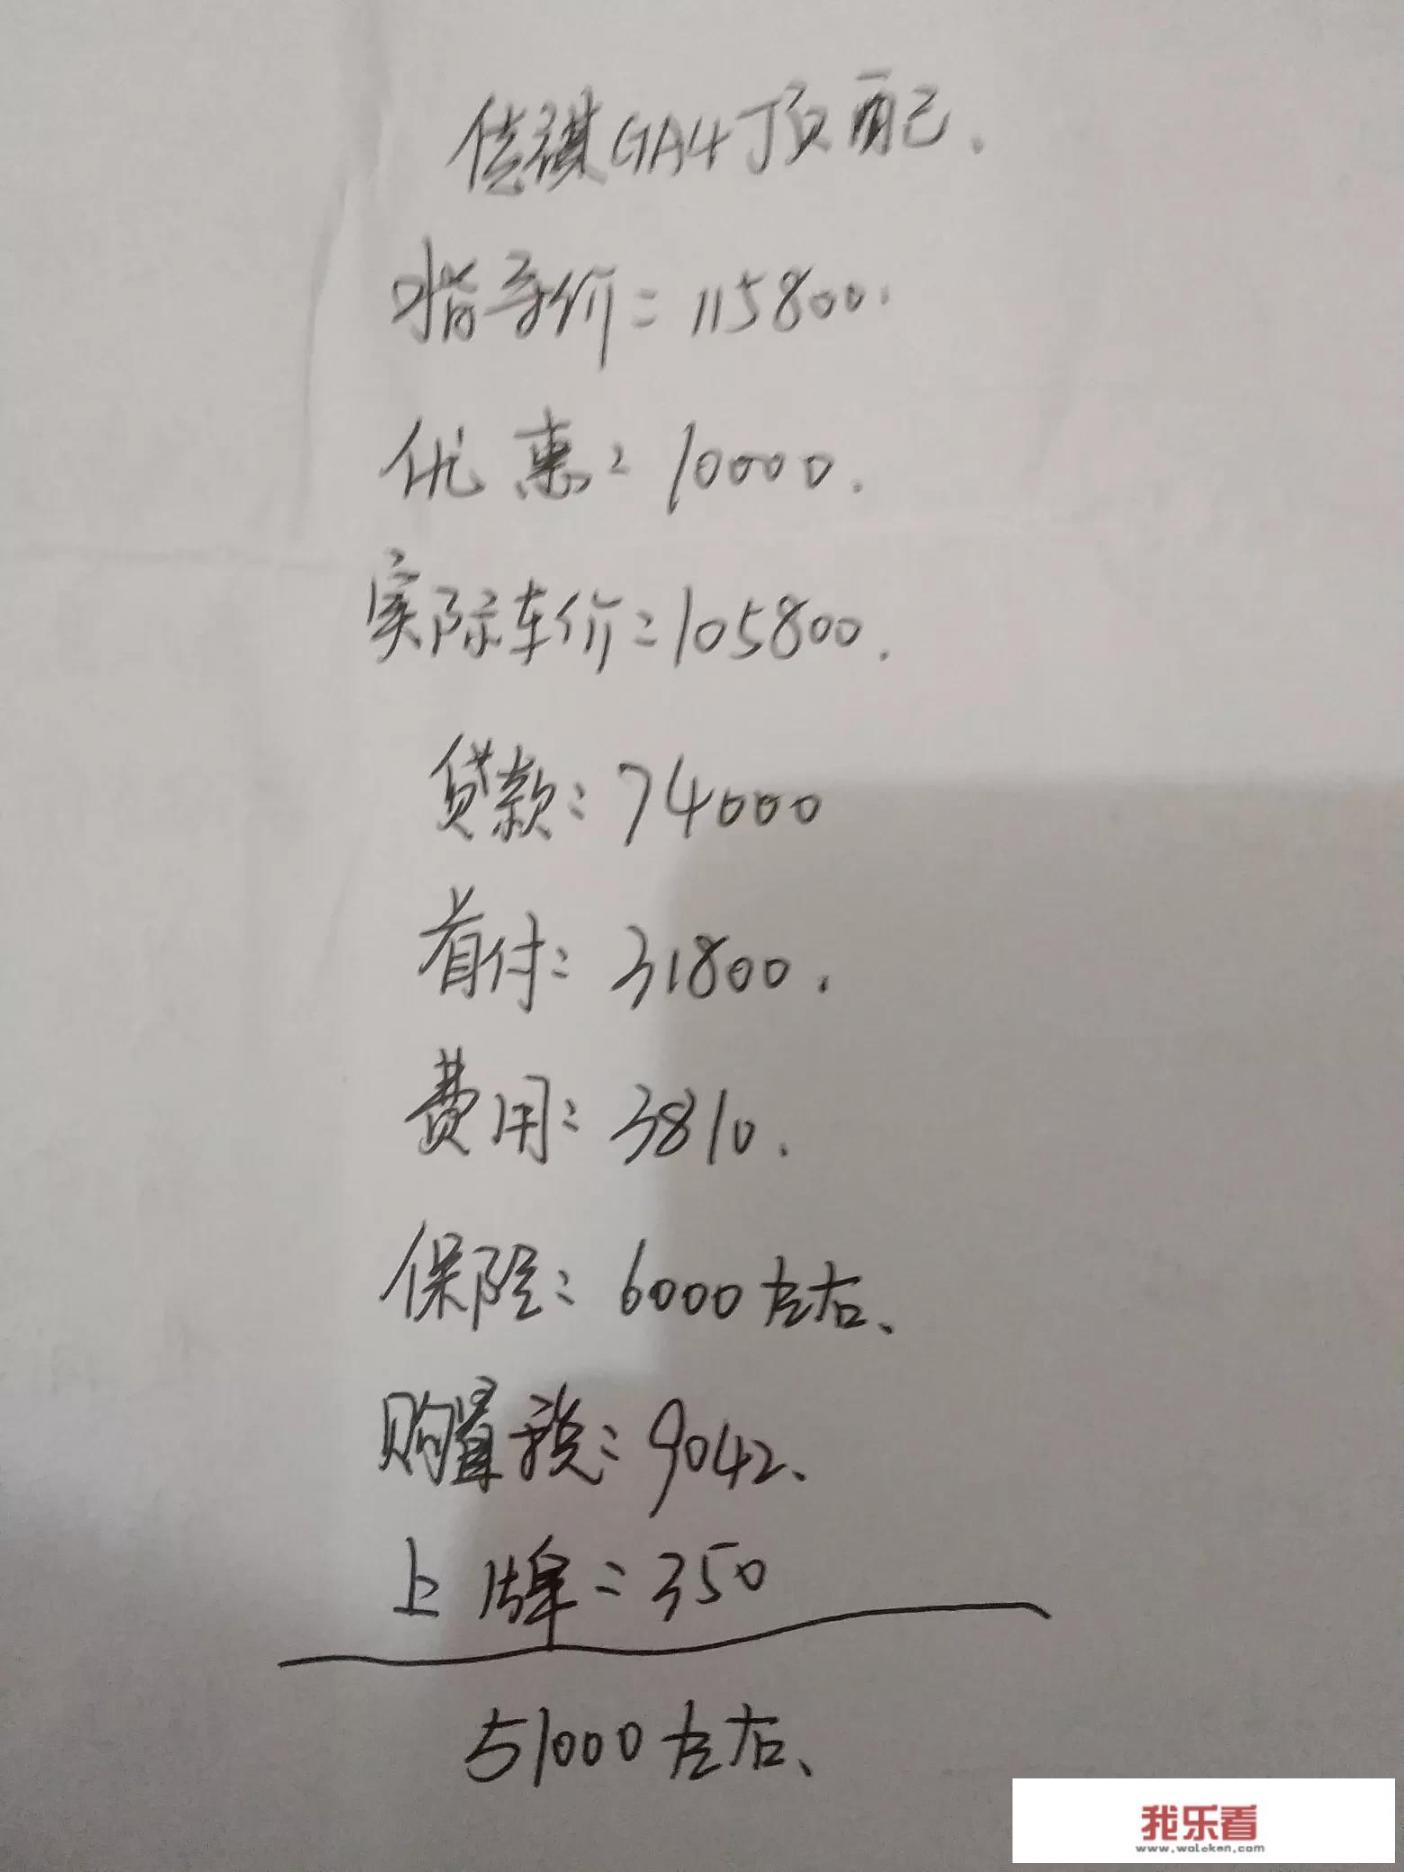 传祺GA4顶配.
指导价=115800.
优惠=10000.
实际车价=105800.
贷款:74000
首付:31800.
费用:3810.
保险:6000左右、
购置税:9042、
上牌=350
51000左右、
我乐看
www.woleken.com